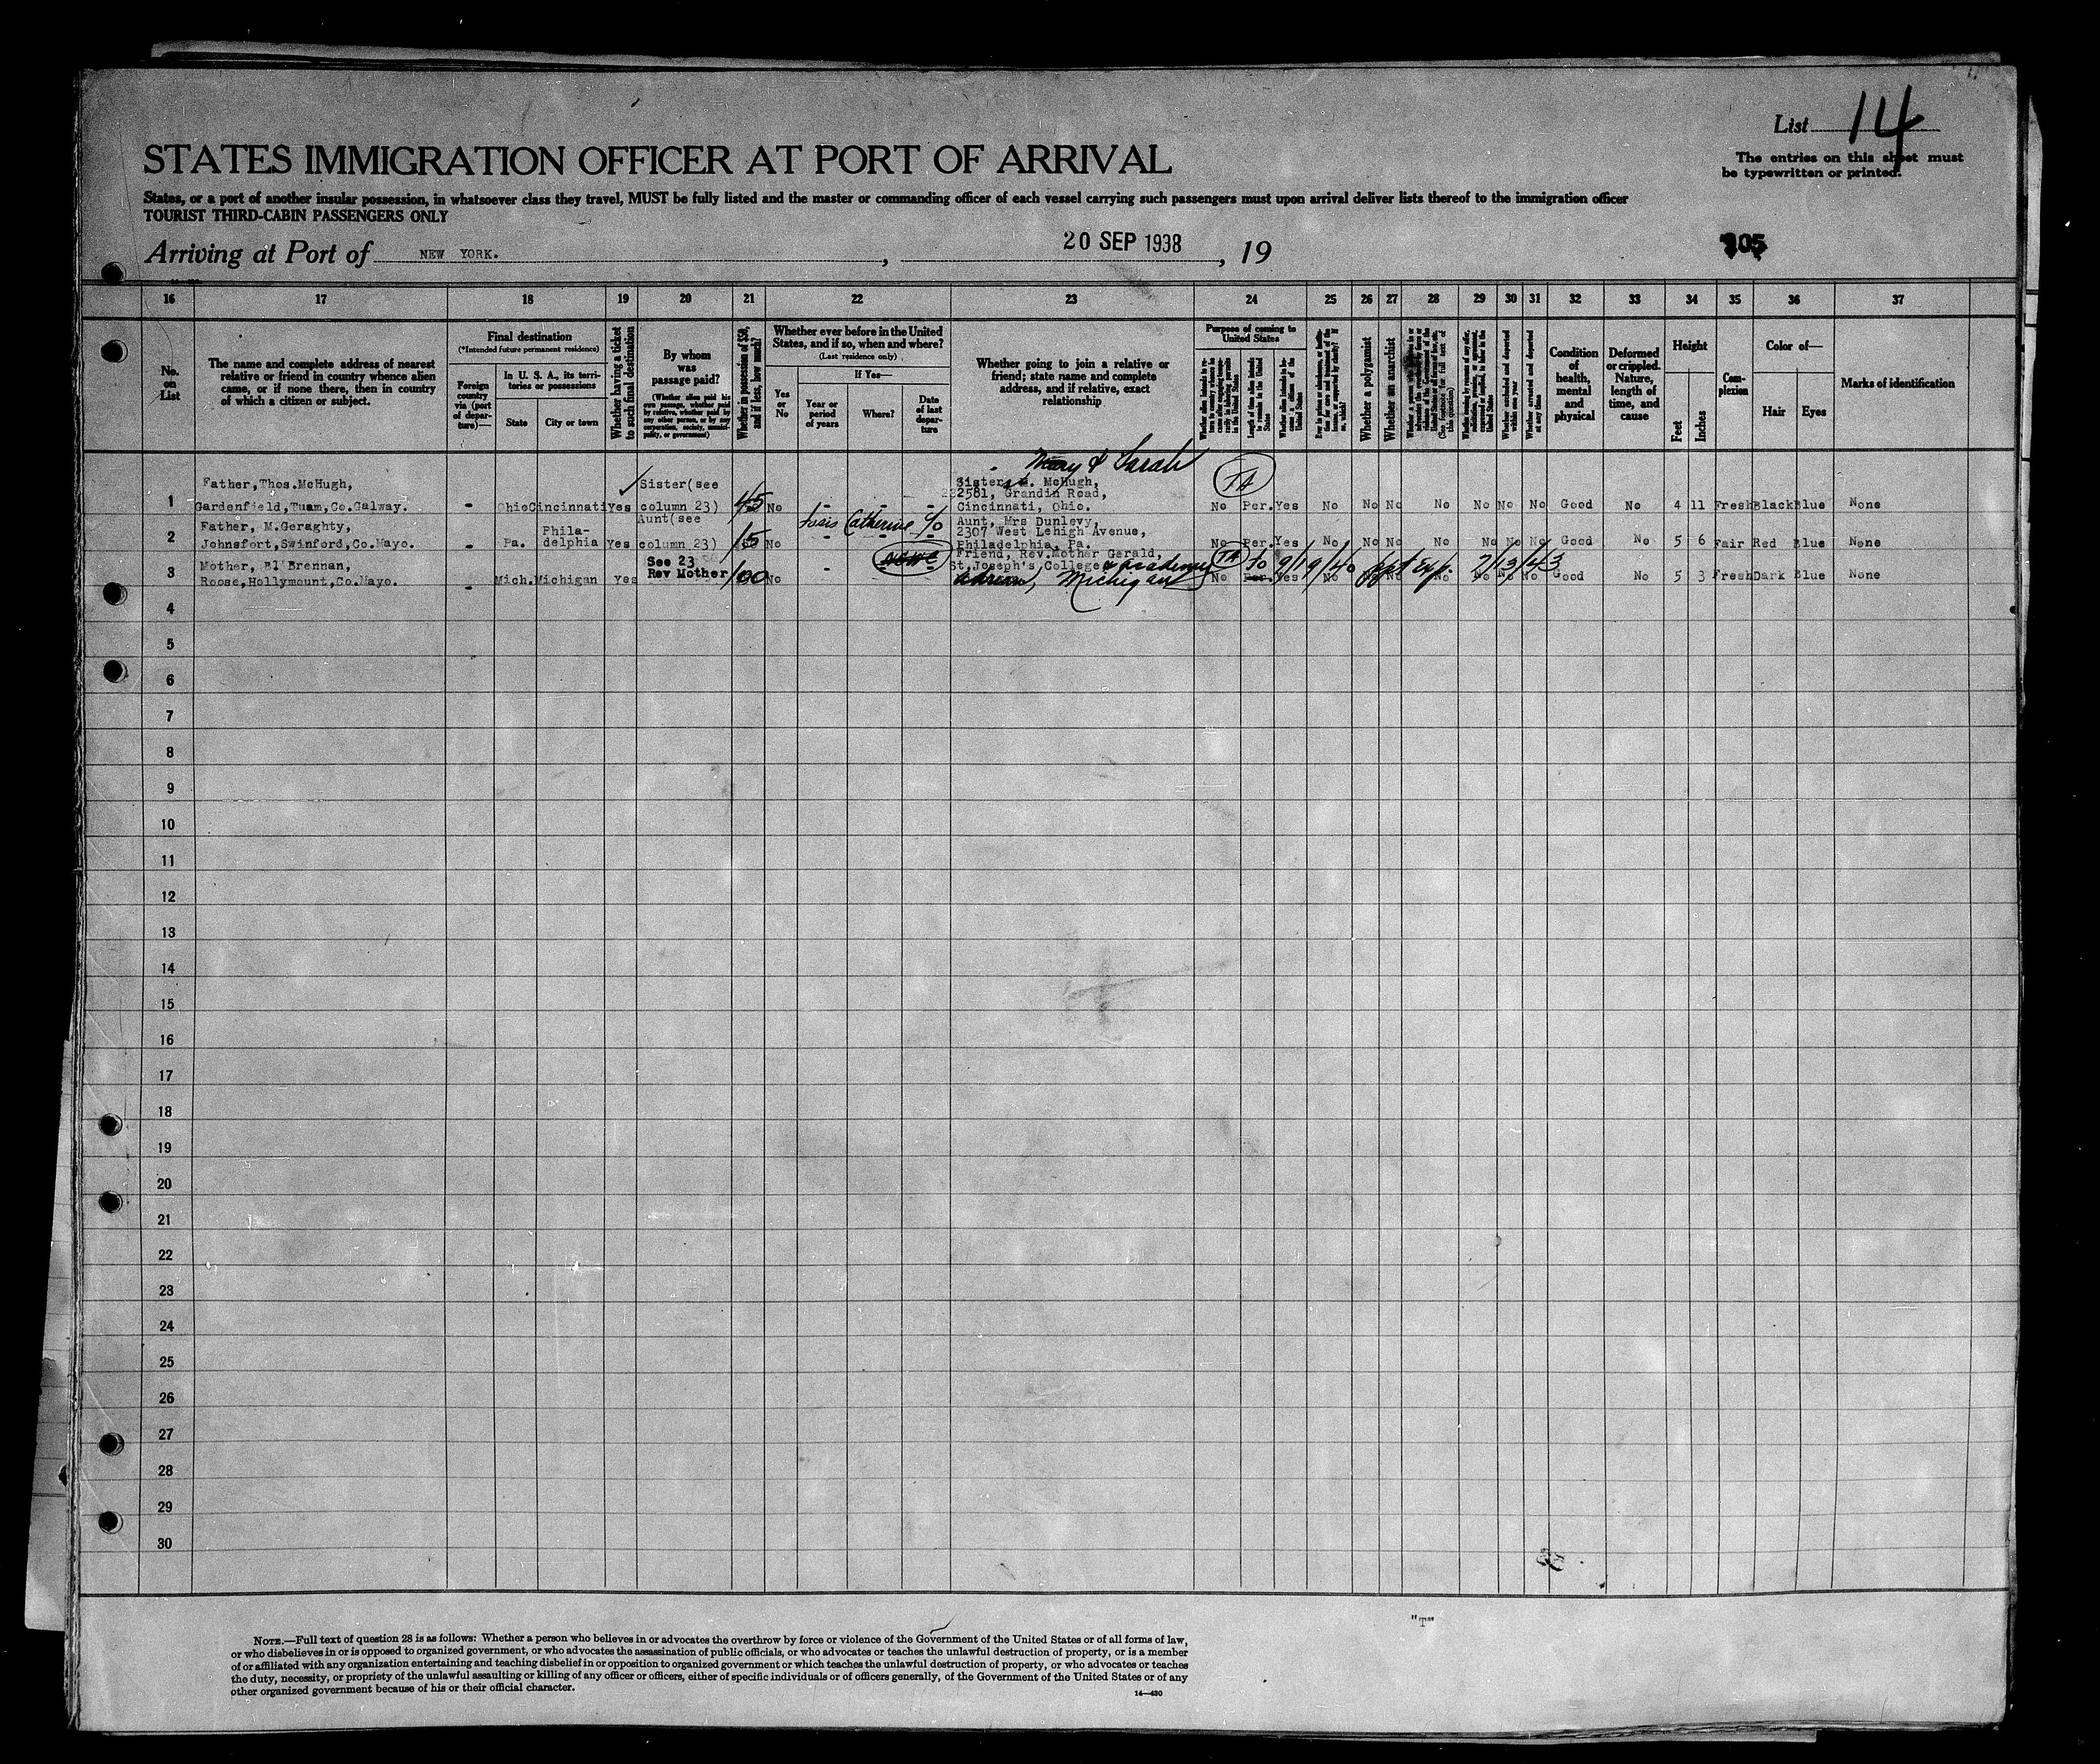 List 14
The entries on this sheet must
be typewritten or printed.
STATES IMMIGRATION OFFICER AT PORT OF ARRIVAL
States, or a port of another insular possession, in whatsoever class they travel, MUST be fully listed and the master or commanding officer of each vessel carrying such passengers must upon arrival deliver lists thereof to the immigration officer
TOURIST THIRD-CABIN PASSENGERS ONLY
Arriving at Port of NEW YORK. , 20 SEP 1938 , 19
16 17 18 19 20 21 22 23 24 25 26 27 28 29 30 31 32 33 34 35 36 37
No.
on
List
The name and complete address of nearest
relative or friend in country whence alien
came, or if none there, then in country
of which a citizen or subject.
Final destination
(*Intended future permanent residence)
Foreign
country
via (port
of depar-
ture)—
In U. S. A., its terri-
tories or possessions
State
City or town
Whether having a ticket
to such final destination
By whom
was
passage paid?
(Whether alien paid his
own passage, whether paid
by relative, whether paid by
any other person, or by any
corporation, society, munici-
pality, or government)
Whether in possession of $50,
and if less, how much?
Whether ever before in the United
States, and if so, when and where?
(Last residence only)
Yes
or
No
If Yes—
Year or
period
of years
Where?
Date
of last
depar-
ture
Whether going to join a relative or
friend; state name and complete
address, and if relative, exact
relationship
Purpose of coming to
United States
Whether a polygamist
Whether an anarchist
Condition
of
health,
mental
and
physical
Deformed
or crippled.
Nature,
length of
time, and
cause
Height
Feet
Inches
Com-
plexion
Color of—
Hair
Eyes
Marks of identification
Mary & Sarah
Father,Thos.McHugh, Sister(see Sisters M. McHugh, TA
1 Gardenfield,Tuam,Co.Galway. - Ohio Cincinnati Yes column 23) 45 No - - - 2581, Grandin Road, Cincinnati, Ohio. No Per. Yes No No No No No No No Good No 4 11 Fresh Black Blue None
Father, M.Geraghty, Phila- Aunt(see Catherine Aunt, Mrs Dunlevy, 2307 West Lehigh Avenue,
2 Johnsfort,Swinford,Co.Mayo. - Pa. delphia Yes column 23) 15 No - - - Philadelphia, Pa. No Per. Yes No No No No No No No Good No 5 6 Fair Red Blue None
Mother, Brennan, See 23 Friend, Rev.Mother Gerald, St.Joseph's College & Academy TA to 9/19/40 7/13/43
3 Roose,Hollymount,Co.Mayo. - Mich. Michigan Yes Rev Mother 100 No - - Adrian, Michigan No Per. Yes No No No No No No No Good No 5 3 Fresh Dark Blue None
4
5
6
7
8
9
10
11
12
13
14
15
16
17
18
19
20
21
22
23
24
25
26
27
28
29
30
"T"
NOTE.—Full text of question 28 is as follows: Whether a person who believes in or advocates the overthrow by force or violence of the Government of the United States or of all forms of law,
or who disbelieves in or is opposed to organized government, or who advocates the assassination of public officials, or who advocates or teaches the unlawful destruction of property, or is a member
of or affiliated with any organization entertaining and teaching disbelief in or opposition to organized government or which teaches the unlawful destruction of property, or who advocates or teaches
the duty, necessity, or propriety of the unlawful assaulting or killing of any officer or officers, either of specific individuals or of officers generally, of the Government of the United States or of any
other organized government because of his or their official character.
14—430